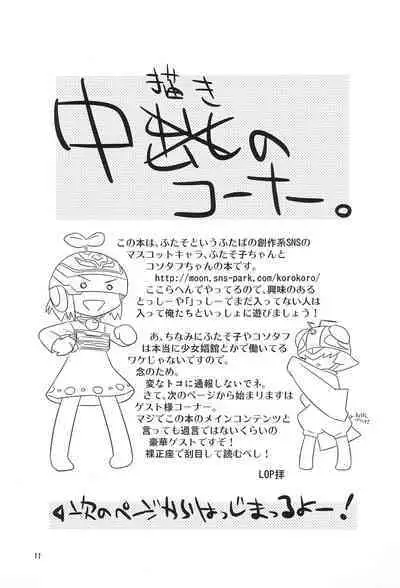 描き
中あのコーナー。
この本は、ふたそというふたばの創作系SNSの
マスコットキャラ、ふたそ子ちゃんと
コソタフちゃんの本です。
http://moon.sns-park.com/korokoro/
ここらへんでやってるので、興味のある
としあきや「っしーでまだ入ってない人は
入って俺たちといっしょに遊びましょう!
あ、ちなみにふたそ子やコソタフ
は本当に少女娼館とかで働いてる
ワケじゃないですので。
念のため。
変なトコに通報しないでネ。
さて、次のページから始まりますは
ゲスト様コーナー。
マジでこの本のメインコンテンツと
言っても過言ではないくらいの
豪華ゲストです!
裸正座で刮目して読むべし!
LOP拝
次のページからはっじまっるよー!
11